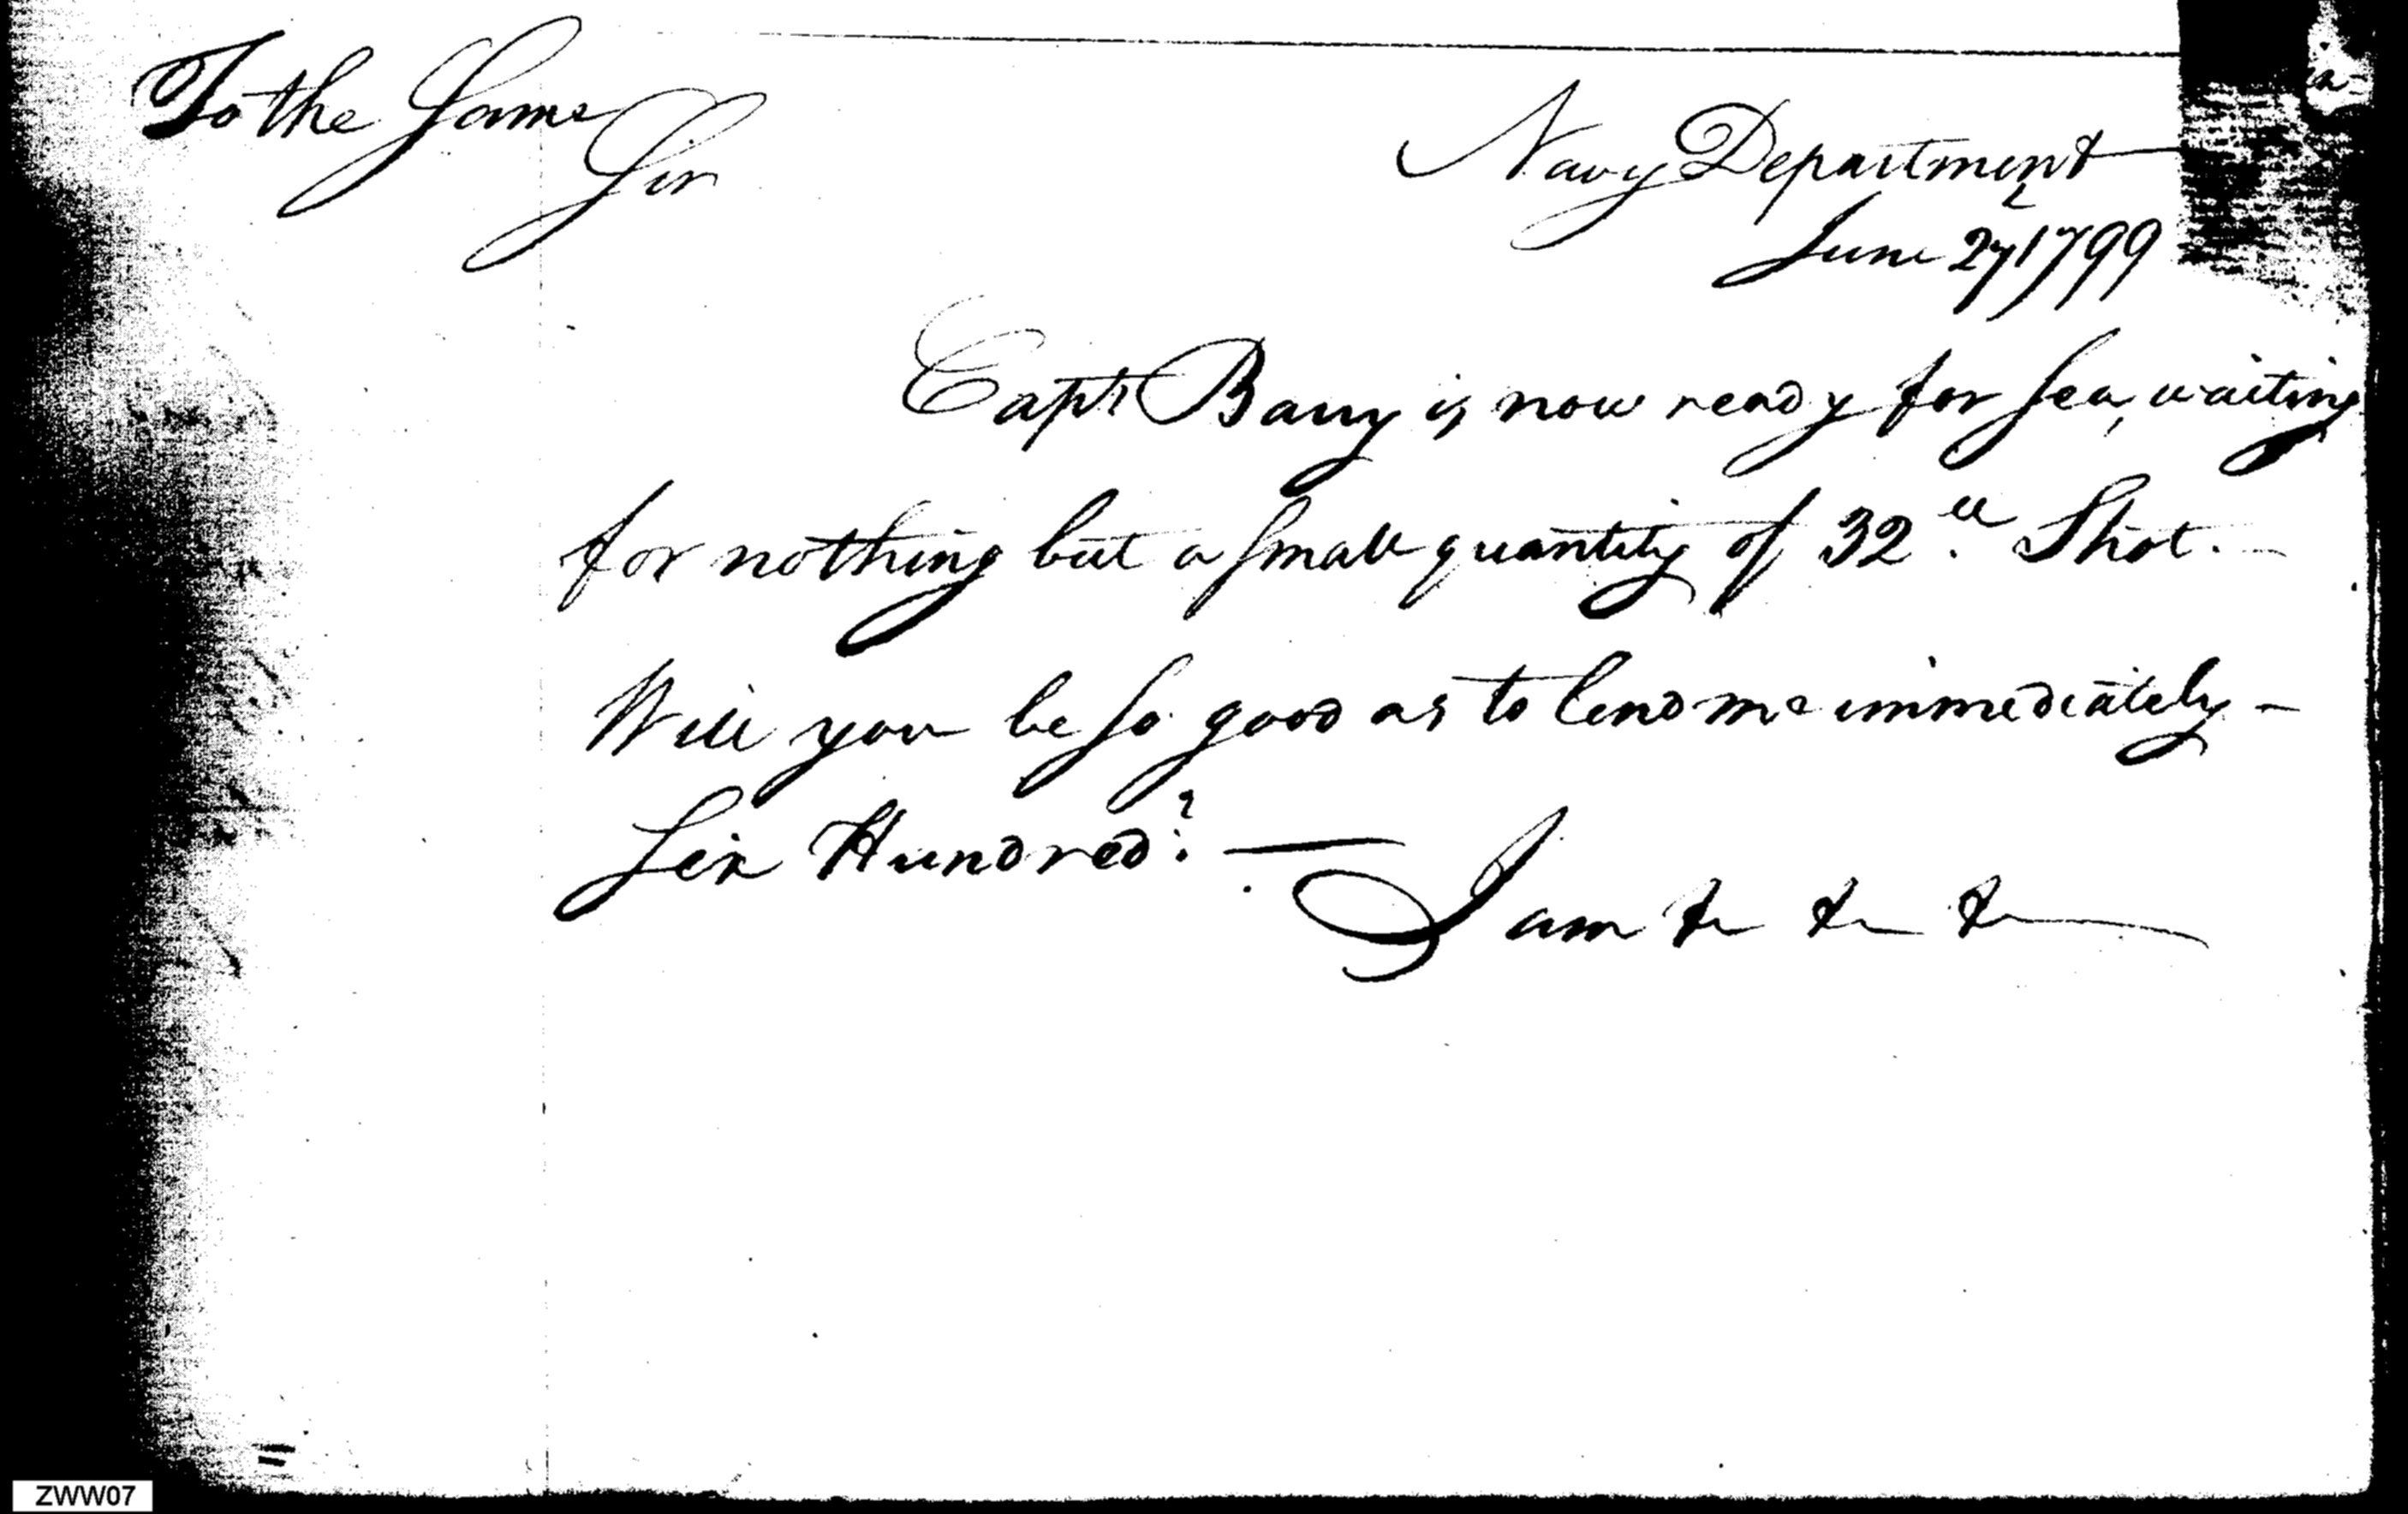 To the Same
Sir
Navy Department
June 27 1799
Capt Barry is now ready for sea, waiting
for nothing but a small quantity of 32 ll Shot.
Will you be so good as to lend me immediately -
Six Hundred? —
I am &c &c &c
ZWW07